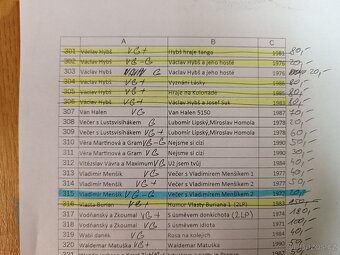 A B C
301 Václav Hybš VG+ Hybš hraje tango 1981 80,-
302 Václav Hybš VG-G Václav Hybš a jeho hosté 1976 20,-
303 Václav Hybš G Václav Hybš a jeho hosté 1976 20,-
304 Václav Hybš VG+ Vyznání lásky 1986 80,-
305 Václav Hybš VG+ Hraje na Kolonáde 1985 80,-
306 Václav Hybš VG+ Václav Hybš a Josef Suk 1983 80,-
307 Van Halen VG Van Halen 5150 1987
308 Večer s Lustsvisihákem G Lubomír Lipský,Miroslav Homola 1978 20,-
309 Večer s Lustsvisihákem VG+ Lubomír Lipský,Miroslav Homola 1978 60,-
310 Věra Martinová a Gram VG-G Nejsme si cizí 1990 50,-
311 Věra Martinová a Gram VG Nejsme si cizí 1990
312 Vítězslav Vávra a Maximum VG Už jsem tvůj 1984
313 Vladimír Menšík VG Večer s Vladimírem Menšíkem 1 1977
314 Vladimír Menšík VG+ Večer s Vladimírem Menšíkem 2 1978
315 Vladimír Menšík VG-G Večer s Vladimírem Menšíkem 2 1978
316 Vlasta Burian VG+ Humor Vlasty Buriana 1 (2LP) 1983
317 Vodňanský a Zkoumal VG+ S úsměvem donkichota (2LP) 1974 180,-
318 Vodňanský a Skoumal VG S úsměvem idiota 1971 100,-
319 Wabi daněk VG Rosa na kolejích 1984
320 Waldemar Matuška VG+ 1990
321 Waldemar Matuška